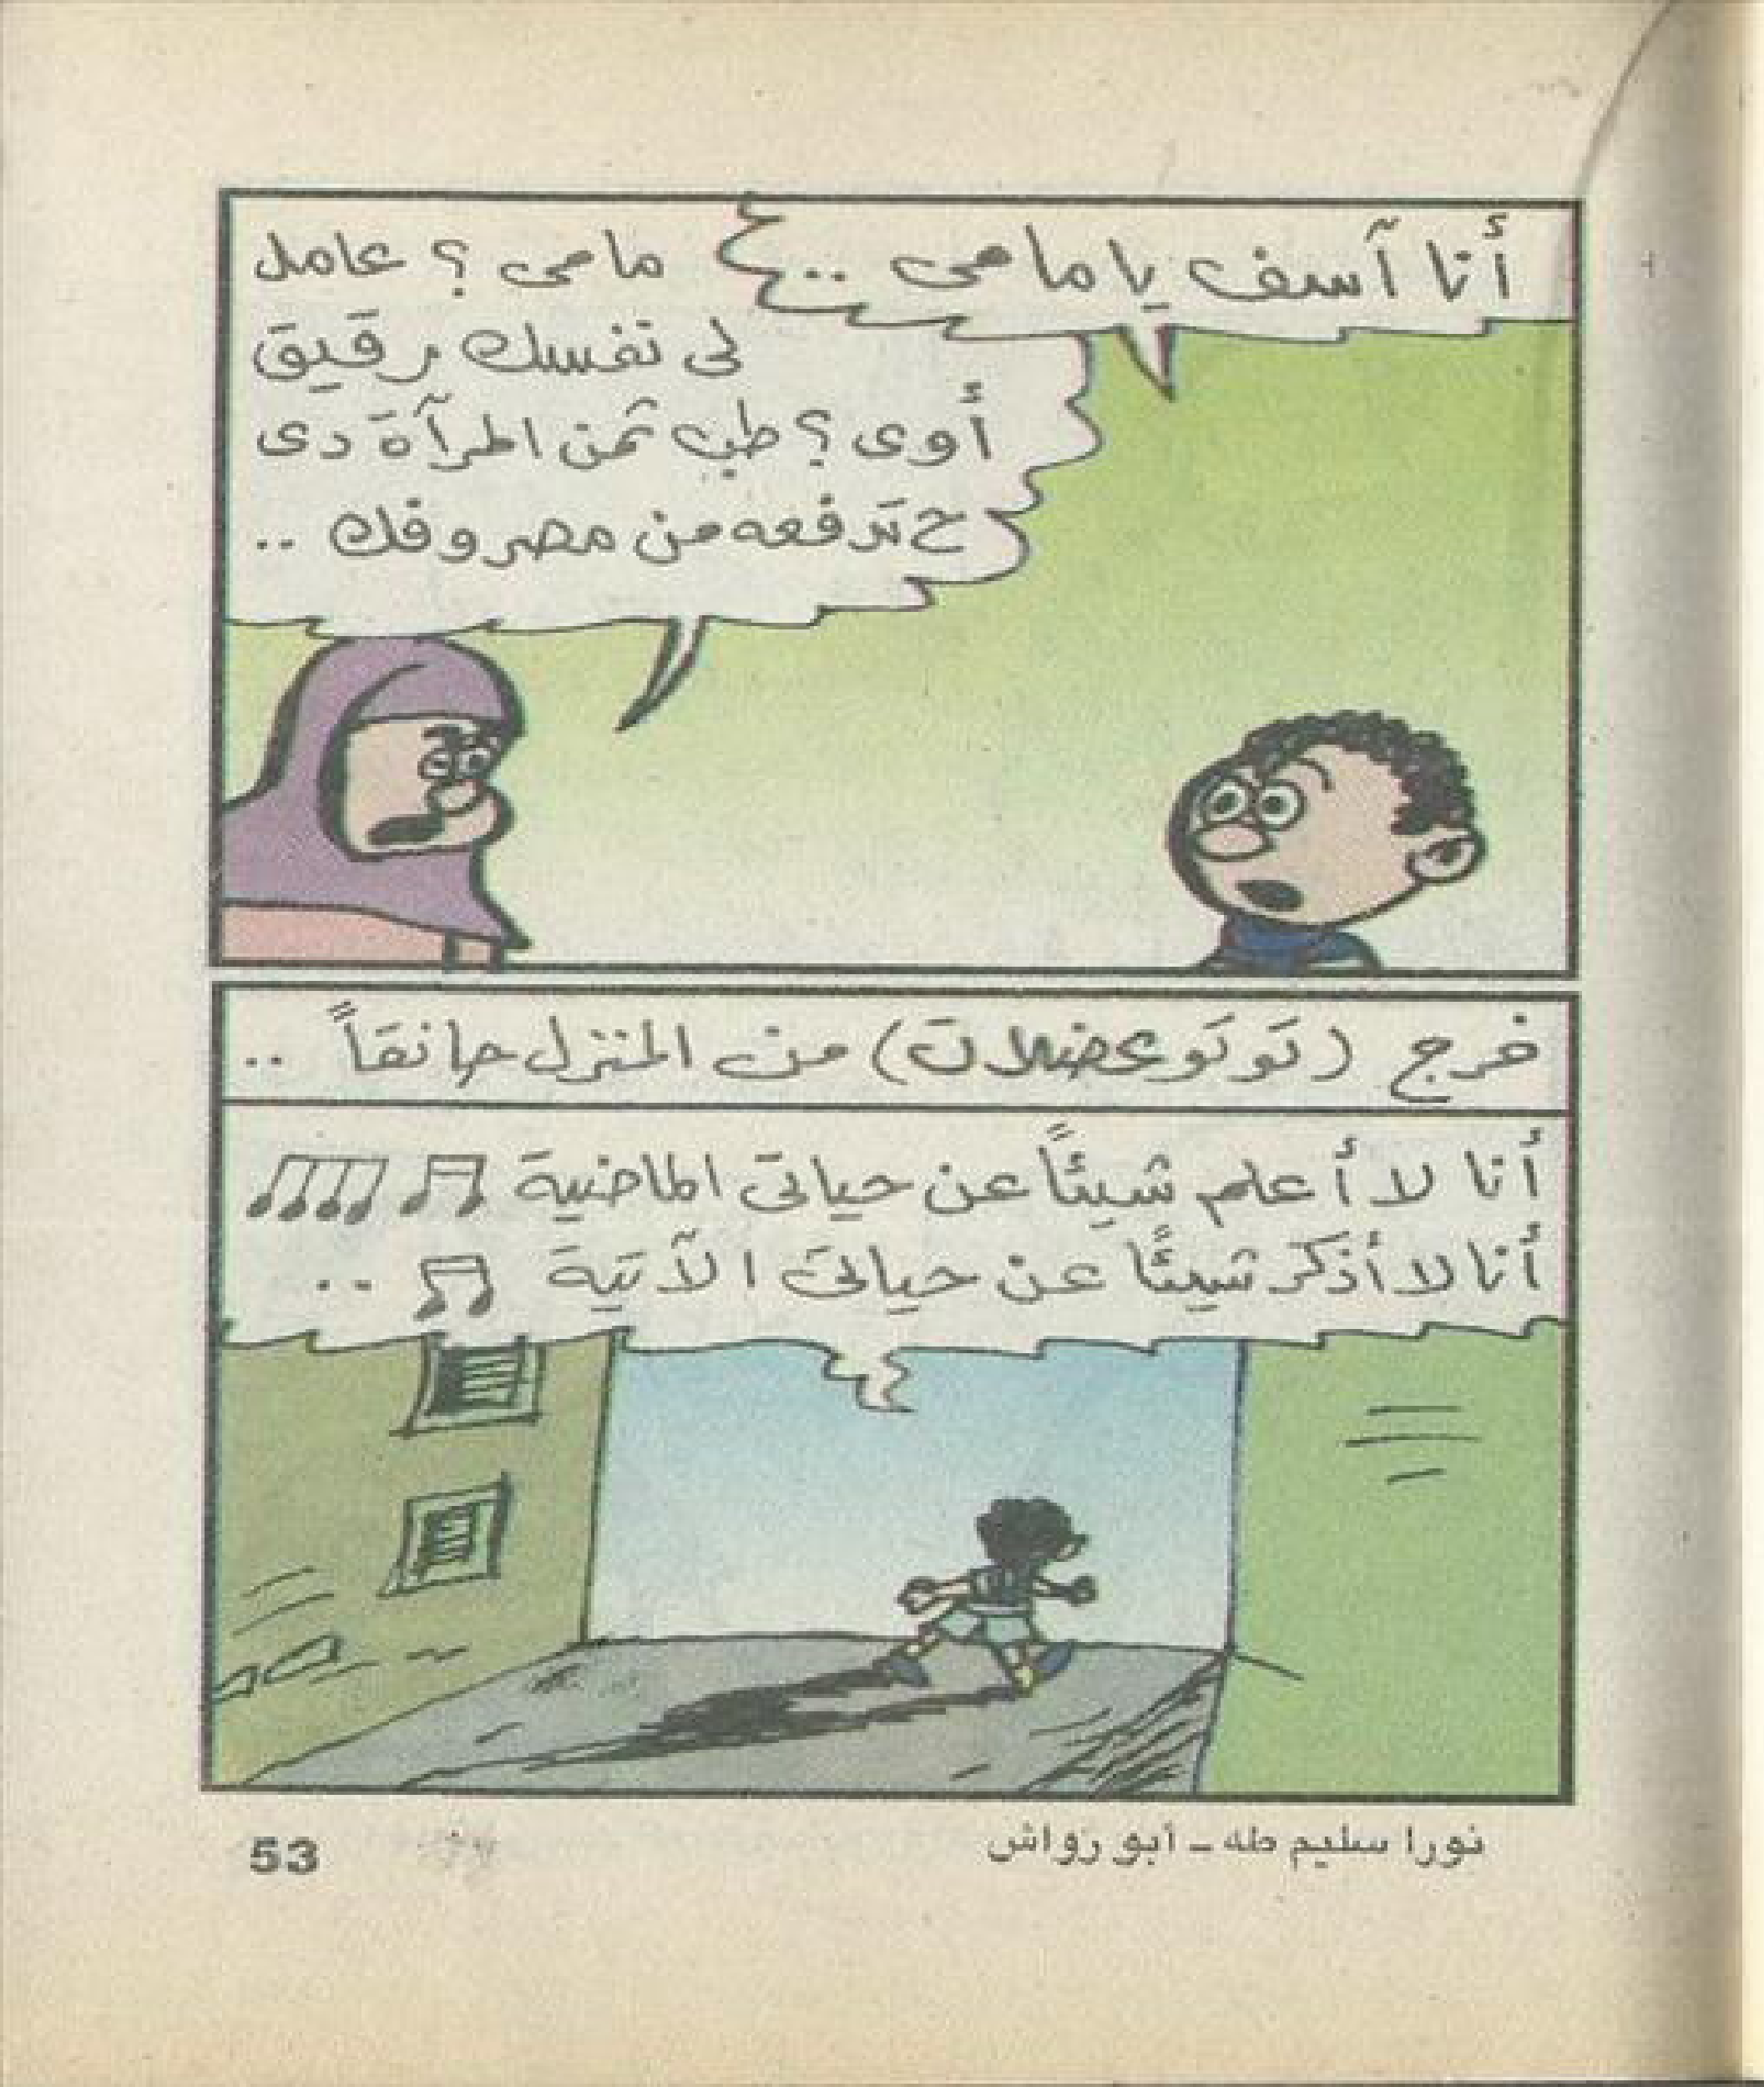 أنا آسف يا مامى ..
مامى ؟ عامل
لى نفسك رقيق
أوى ؟ طب ثمن المرآة دى
ح تدفعه من مصروفك ..
خرج (توتو عضلات) من المنزل حانقاً ..
أنا لا أعلم شيئاً عن حياتى الماضية
أنا لا أذكر شيئاً عن حياتى الآتية ..
نورا سليم طه - أبو رواش
53